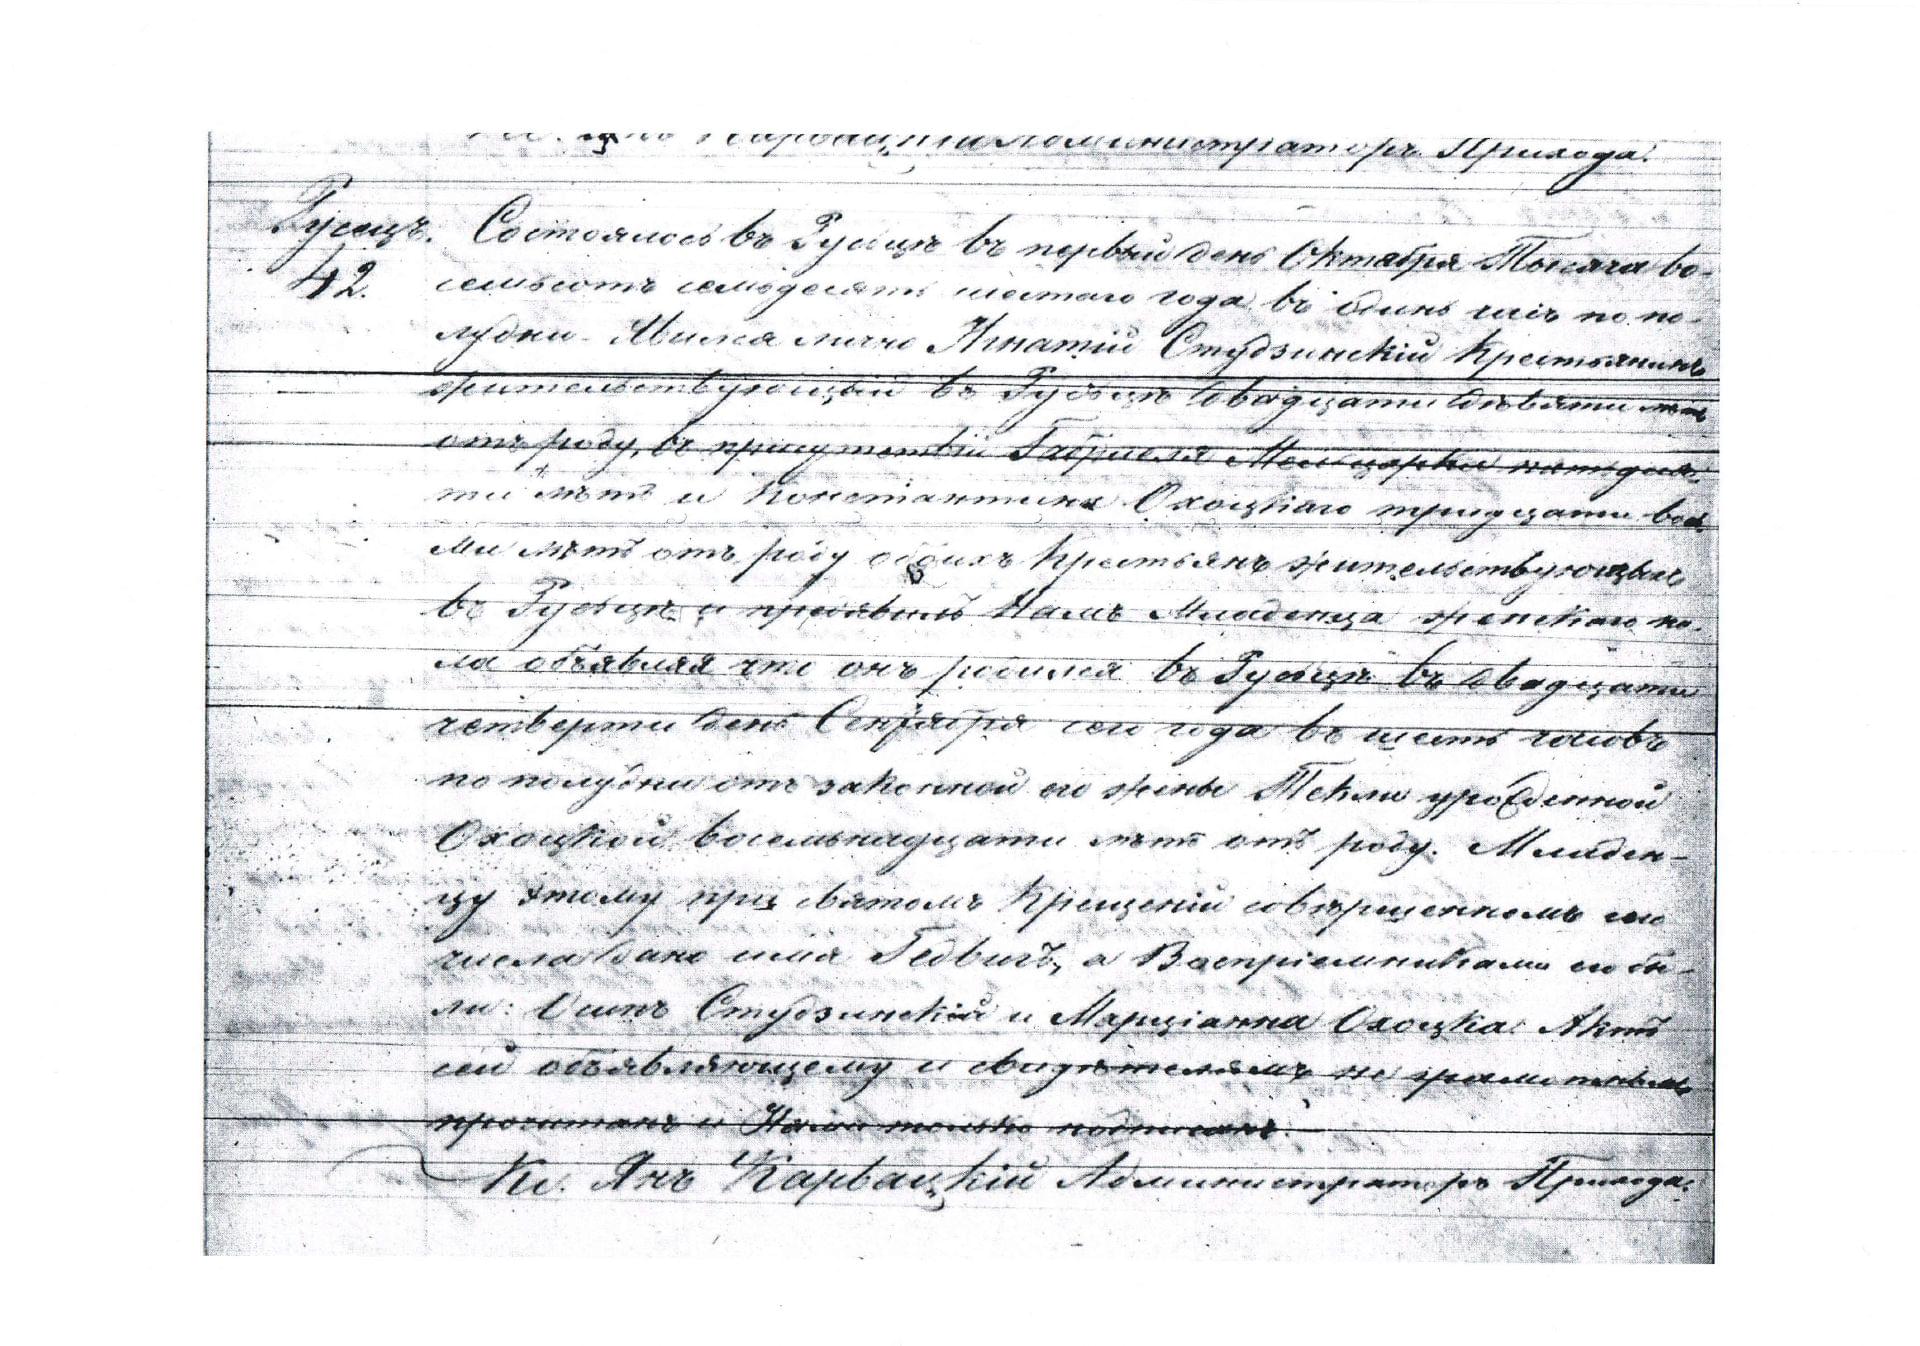 Администраторъ Прихода.
Русецъ.
42.
Состоялось въ Русьцѣ въ первый день Октября Тысяча во-
семьсотъ семьдесятъ шестаго года въ одинъ часъ по по-
лудни. Явился лично Игнатій Студзинскій Крестьянинъ
жительствующый въ Русьцѣ двадцати девяти лѣтъ
отъ роду, въ присутствіи Габріеля пятьдеся-
ти лѣтъ и Константина Охоцкаго тридцати вось-
ми лѣтъ отъ роду обоихъ Крестьянъ жительствующыхъ
въ Русьцѣ и предъявилъ Намъ Младенца женскаго по-
ла объявляя что онъ родился въ Русьцѣ въ двадцати
четверти день Сентября сего года въ шесть часовъ
по полудни отъ законной его жены Текли урожденной
Охоцкой восемьнадцати лѣтъ отъ роду. Младен-
цу этому при святомъ Крещеніи совершенномъ сего
числа дано имя Гедвигъ, а Воспріемниками его бы-
ли: Осипъ Студзинскій и Марціанна Охоцка. Актъ
сей объявляющему и свидѣтелямъ не грамотнымъ
прочитанъ и Нами только подписанъ.
Кс. Янъ Карвацкій Администраторъ Прихода.